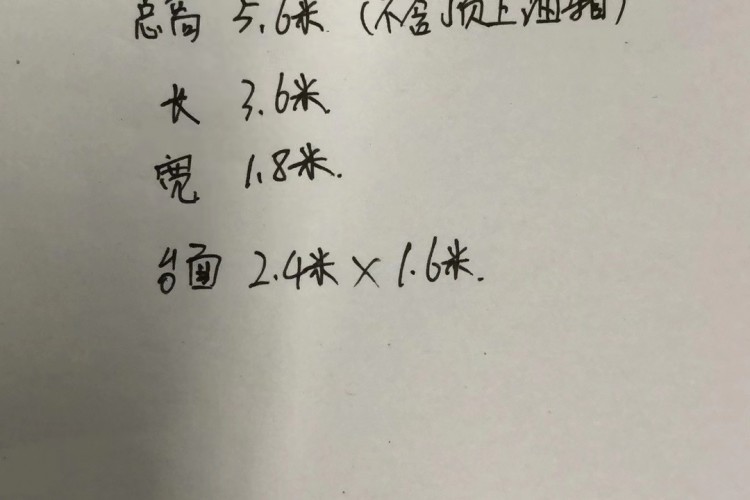 总高 5.6米 (不含顶上油箱)
长 3.6米
宽 1.8米.
台面 2.4米×1.6米.